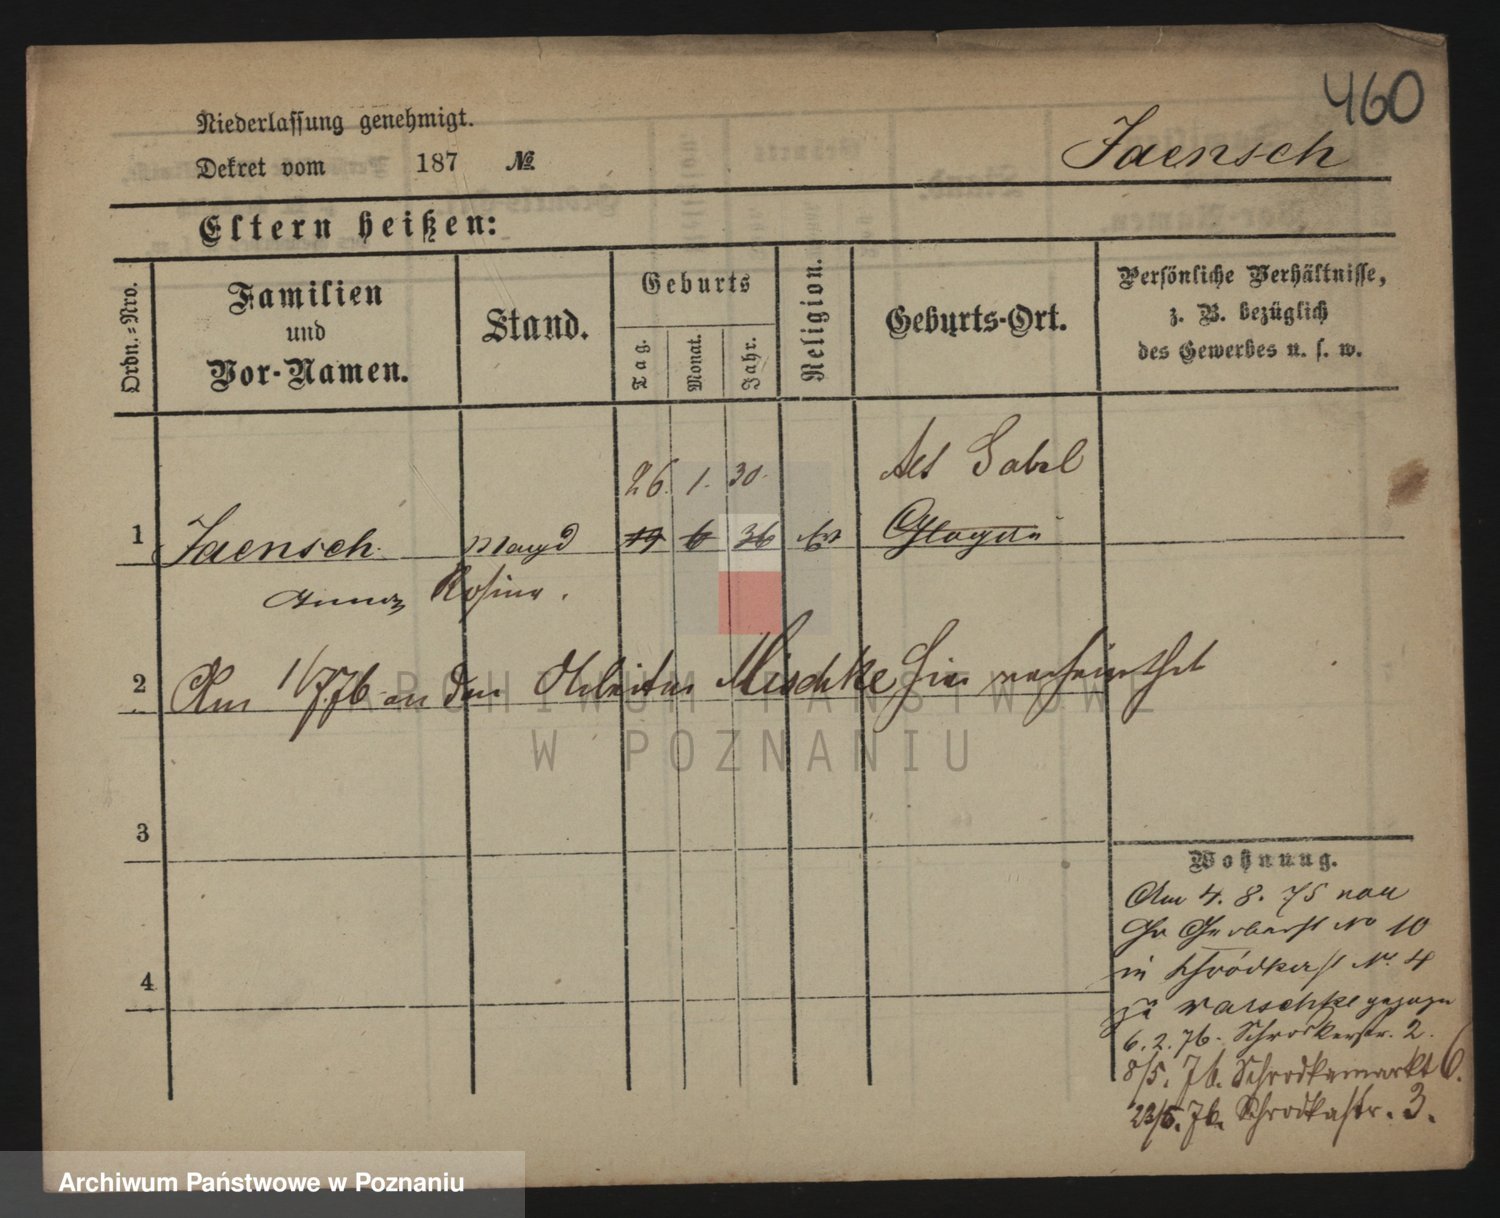 460
Niederlassung genehmigt.
Dekret vom 187 №
Jaensch
Eltern heißen:
Ordn.=Nro.
Familien
und
Vor-Namen.
Stand.
Geburts
Tag.
Monat.
Jahr.
Religion.
Geburts-Ort.
Persönliche Verhältnisse,
z. B. bezüglich
des Gewerbes u. s. w.
26. 1. 30. Alt Gabel
1 Jaensch Magd 6 36 Ev Glogau
Anna Rosine.
2 Am 1/7.76 an den Arbeiter Mischke hier verheirathet
3
4
Wohnung.
Am 4. 8. 75 von
Gr Gerberst No 10
in Schrodkerst Nr. 4
zu gezogen
6. 2. 76. Schrodkerstr. 2.
8/5. 76. Schrodkamarkt 6.
23/5. 76. Schrodkastr. 3.
ARCHIWUM PAŃSTWOWE
W POZNANIU
Archiwum Państwowe w Poznaniu